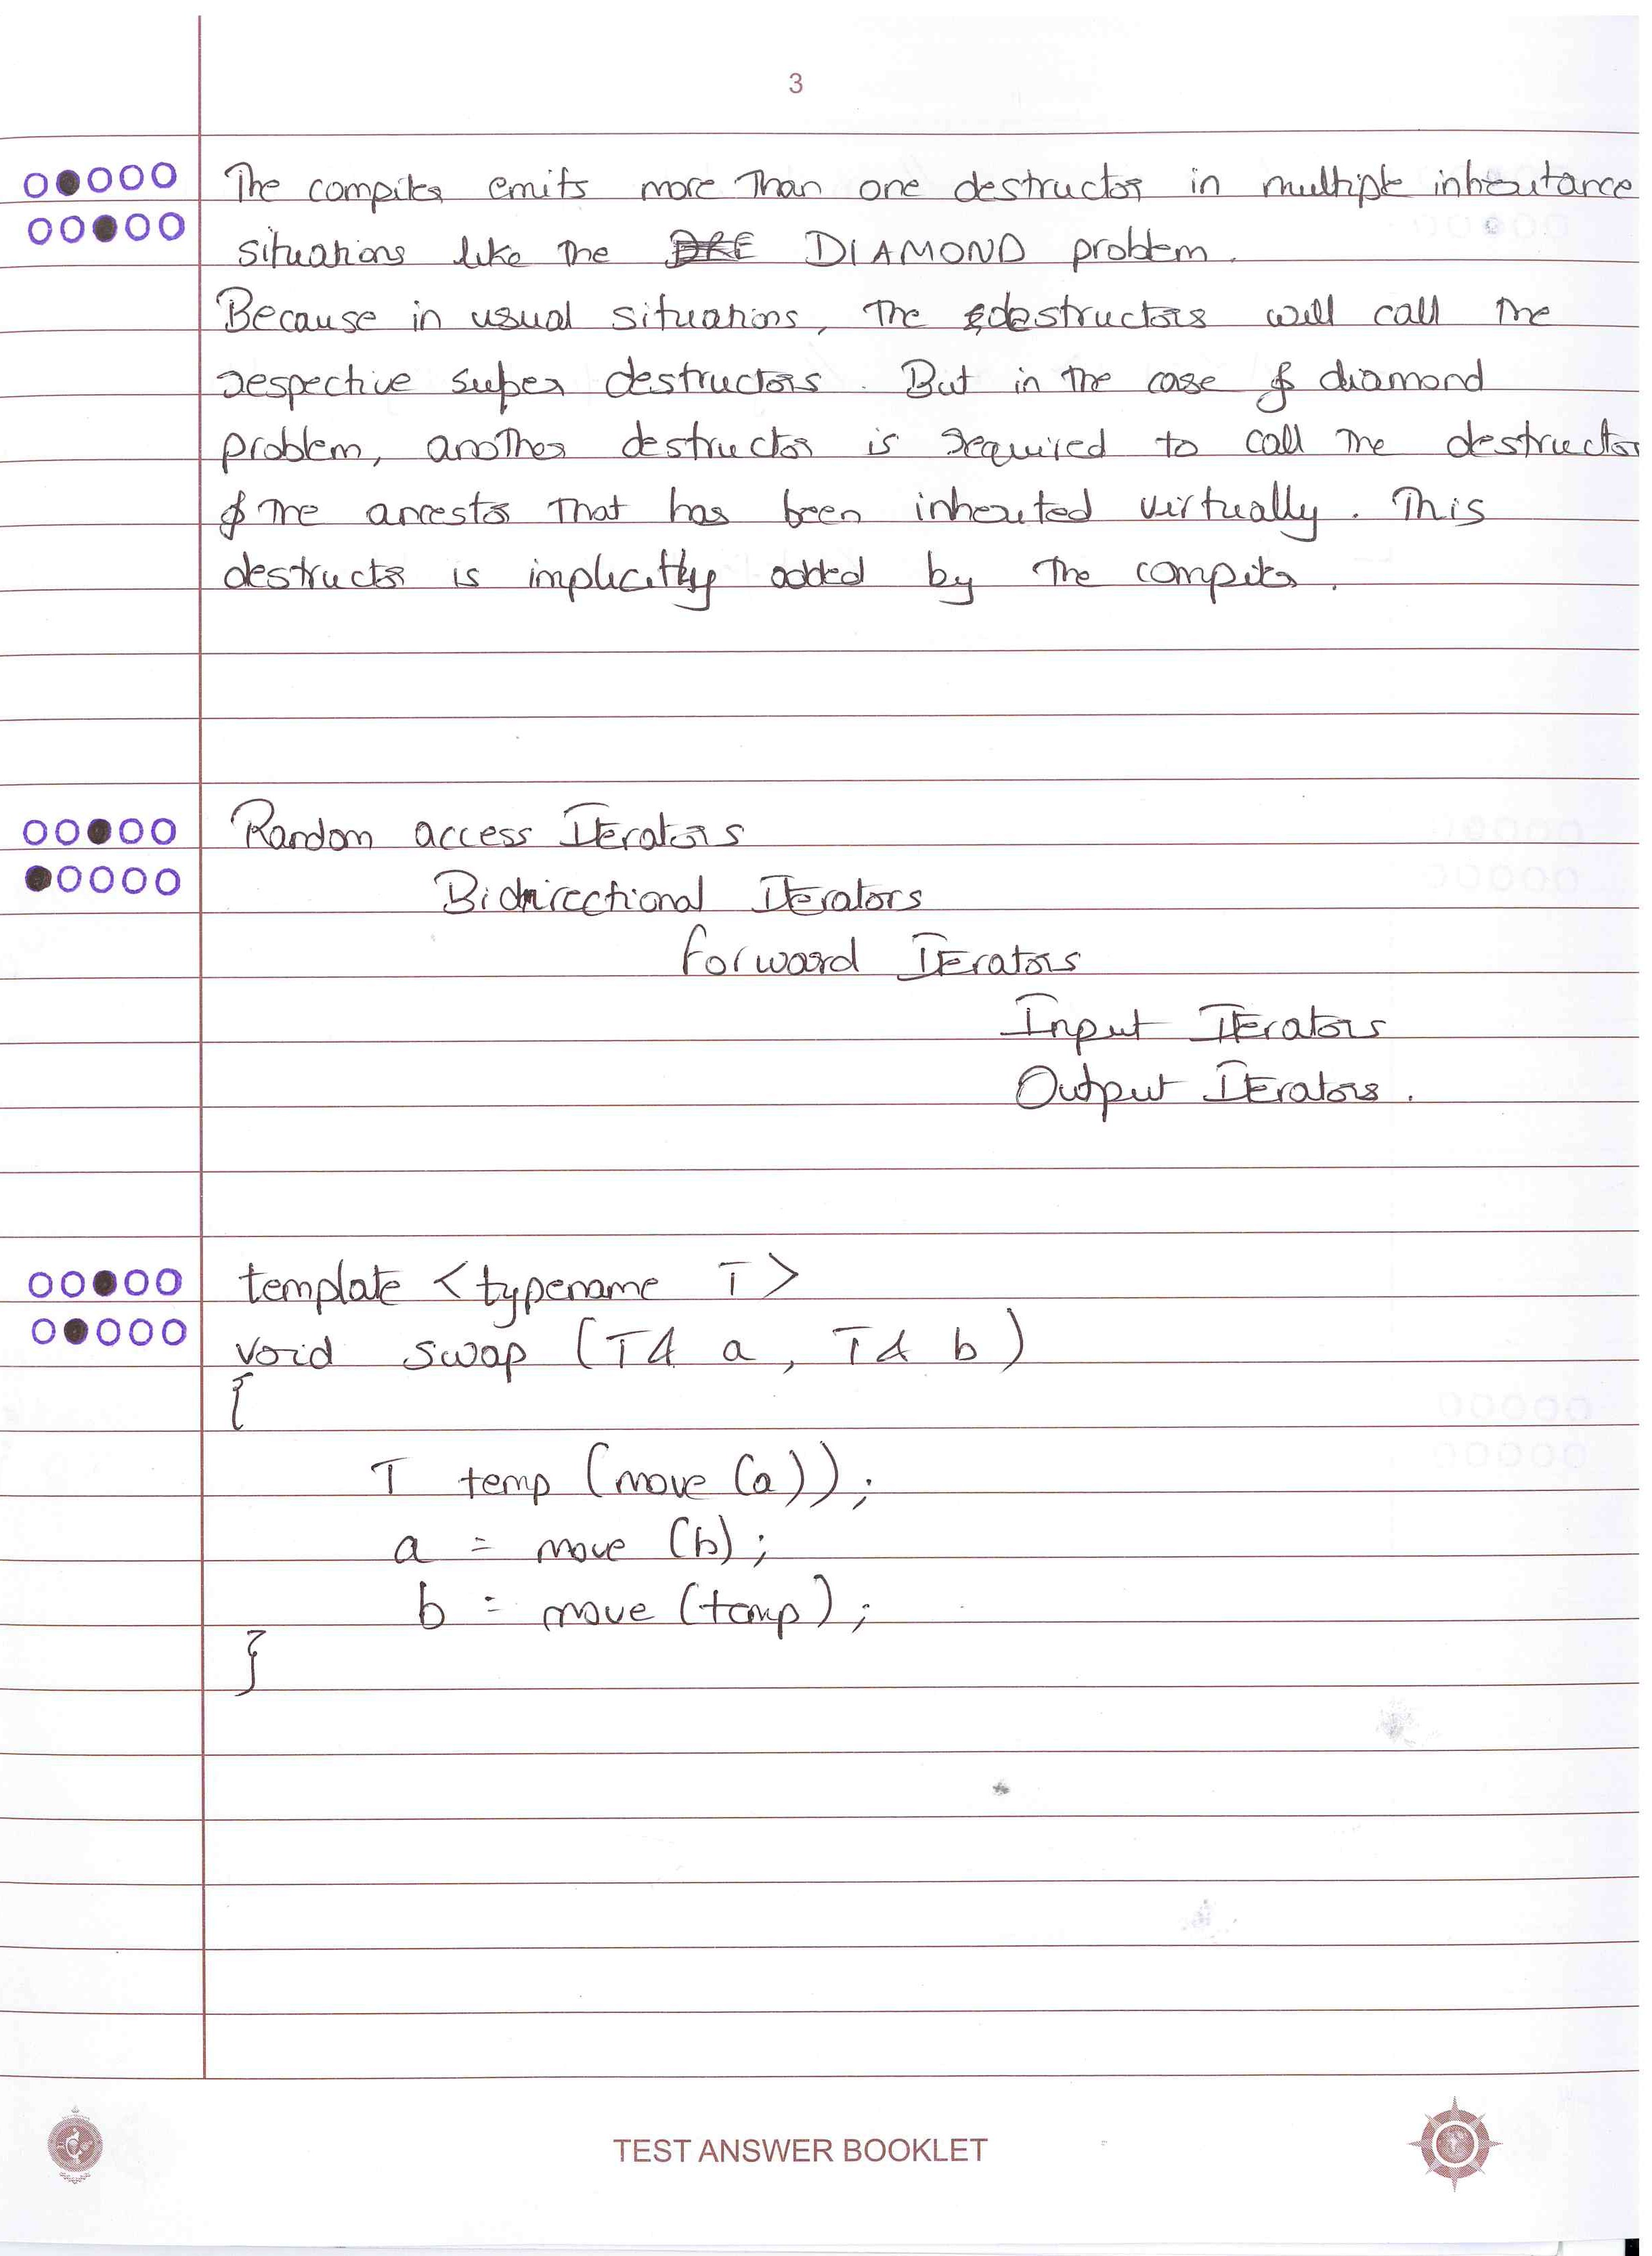 3
The compiler emits more than one destructor in multiple inheritance
situations like the DIAMOND problem.
Because in usual situations, the destructors will call the
respective super destructors. But in the case of diamond
problem, another destructor is required to call the destructor
of the ancestor that has been inherited virtually. This
destructor is implicitly added by the compiler.
Random access Iterators
Bidirectional Iterators
Forward Iterators
Input Iterators
Output Iterators.
template <typename T>
void swap (T& a, T& b)
{
T temp (move (a));
a = move (b);
b = move (temp);
}
TEST ANSWER BOOKLET